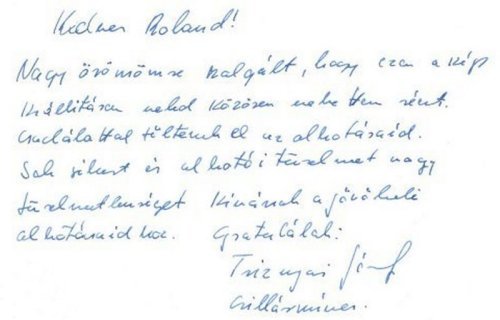 Kedves Roland!
Nagy örömömre szolgált, hogy ezen a kép
kiállításon veled közösen vehettem részt.
Csodálattal töltenek el az alkotásaid.
Sok sikert és alkotói türelmet nagy
türelmetlenséget kívánok a jövőbeli
alkotásaidhoz. Gratulálok:
Trznyai József
csillárműves.